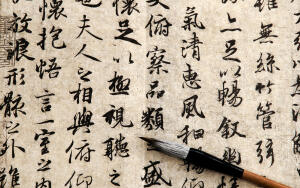 雖無絲竹管弦
足以暢敘幽
氣清惠風和暢
俯察品類之盛
懷足以極視聽之
也夫人之相與俯仰
懷抱悟言一室之內
放浪形骸之外雖